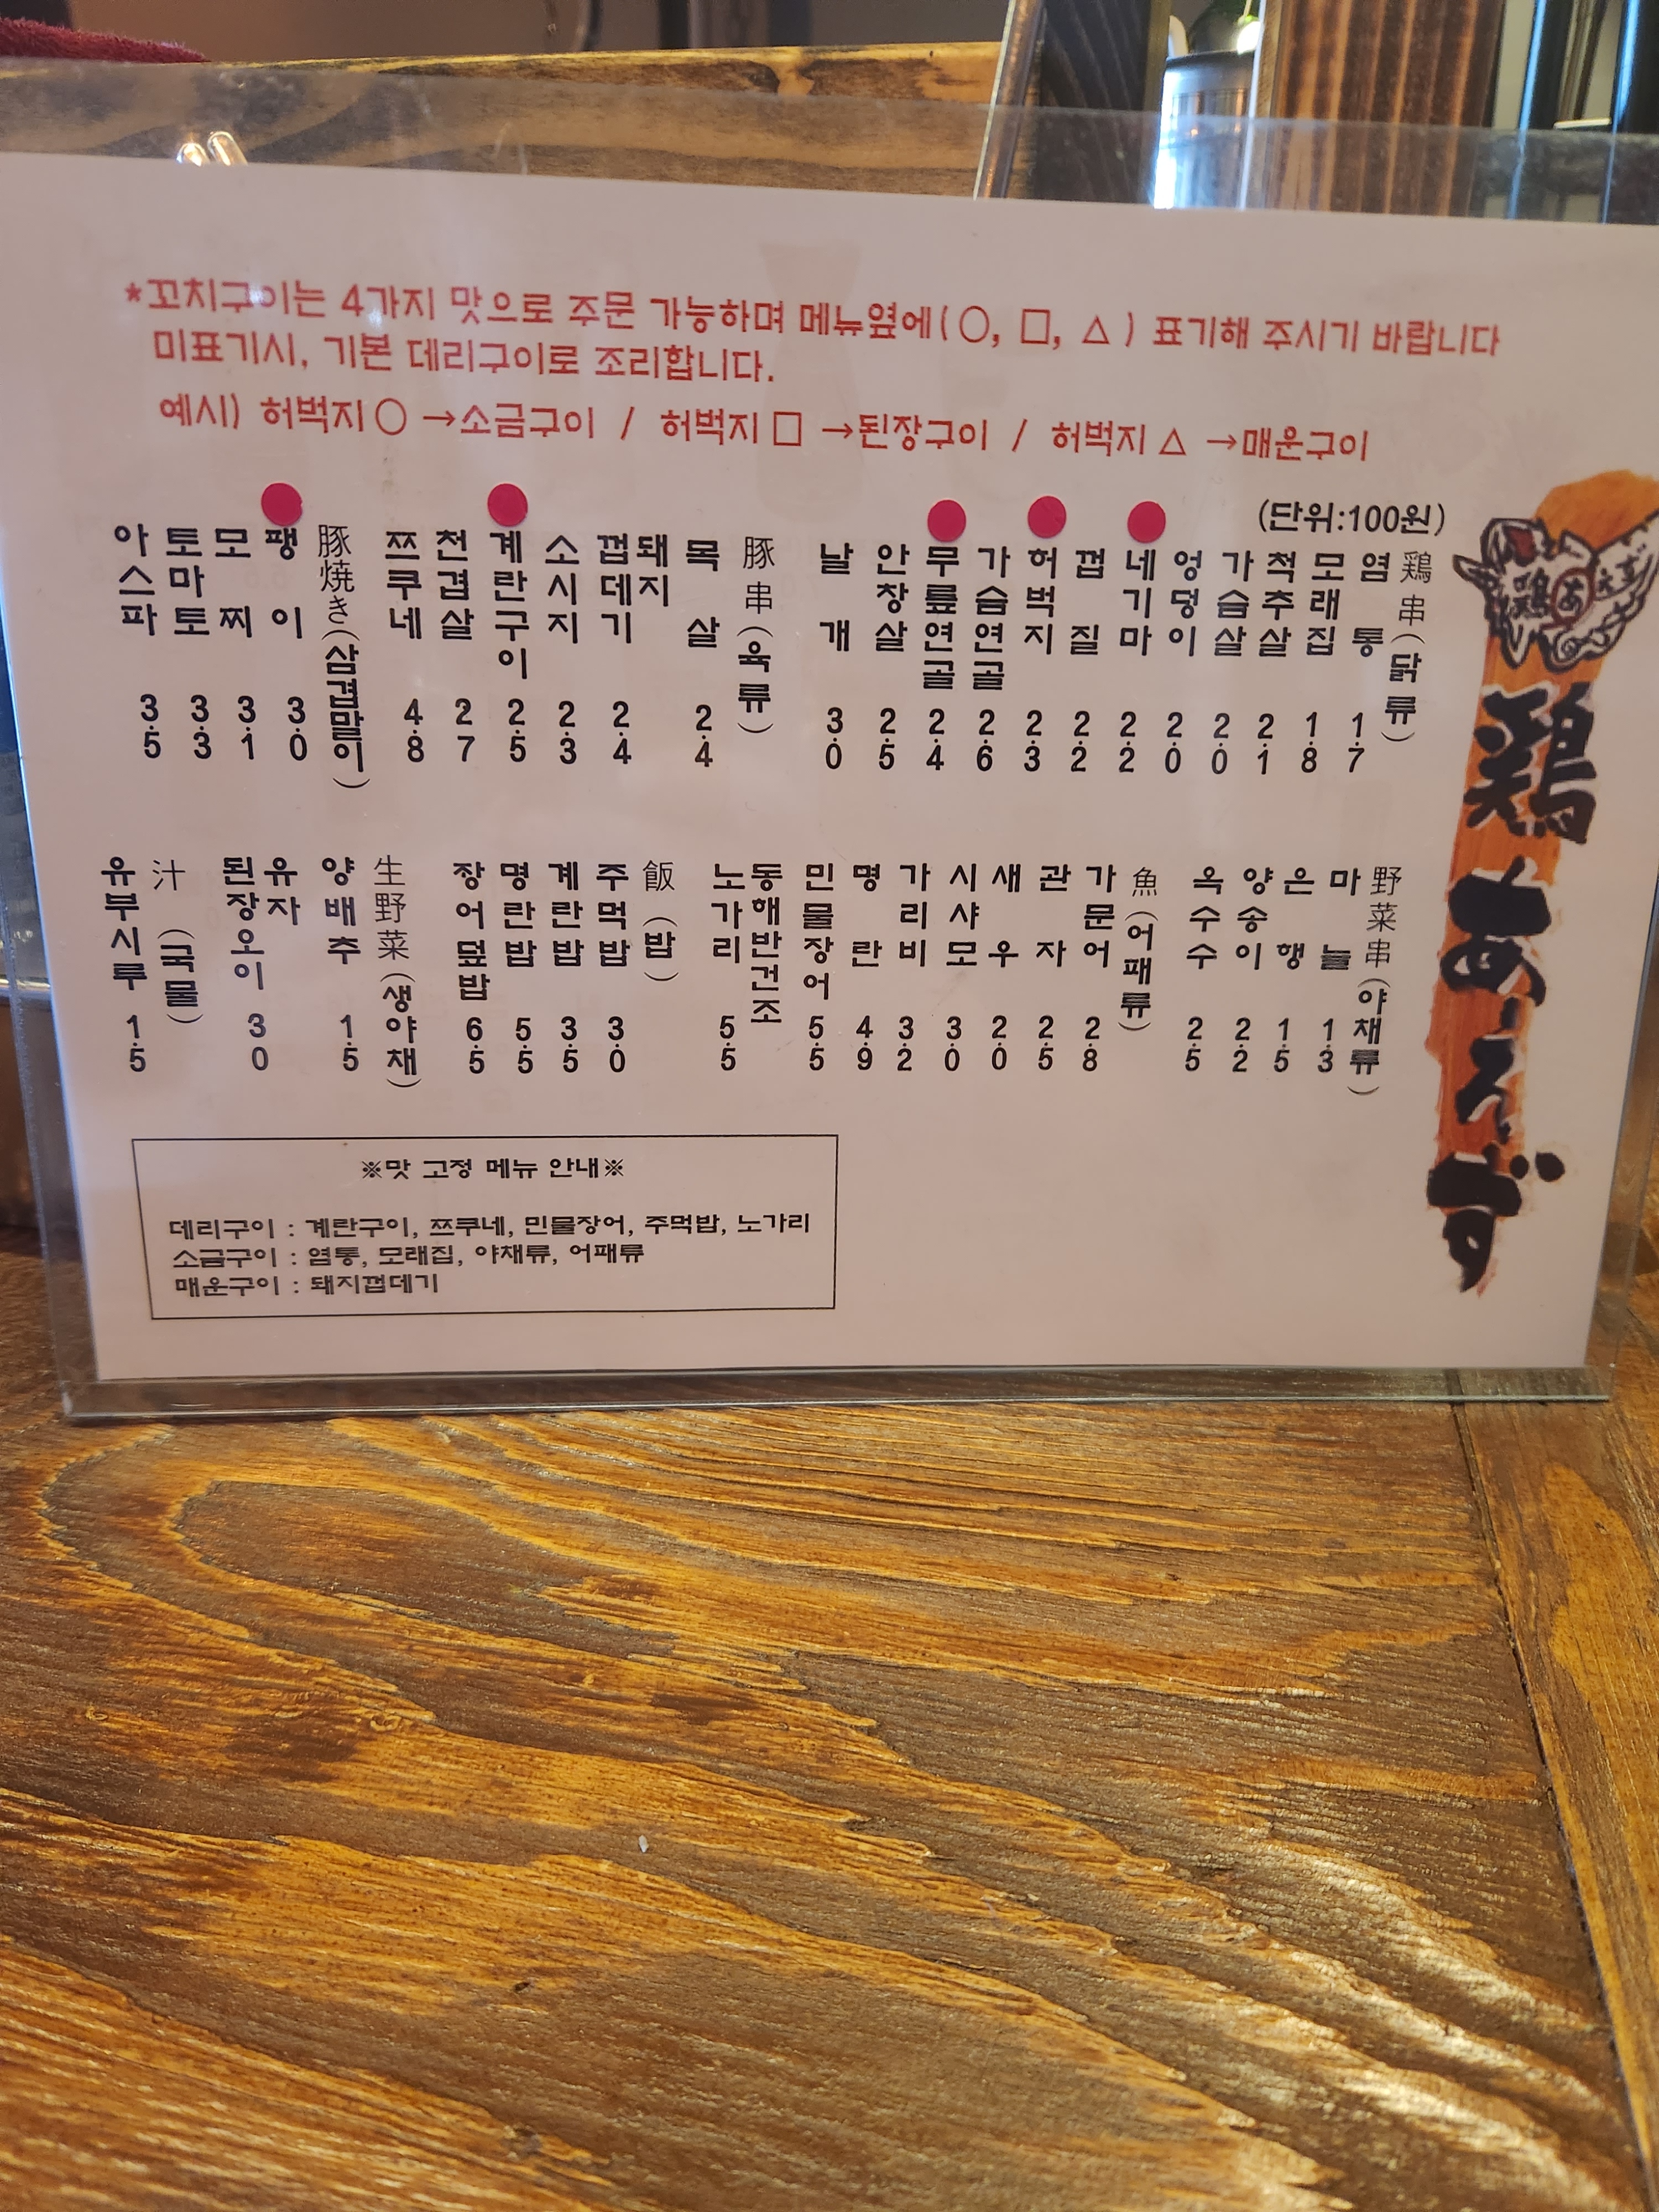 *꼬치구이는 4가지 맛으로 주문 가능하며 메뉴옆에(○, □, △) 표기해 주시기 바랍니다
미표기시, 기본 데리구이로 조리합니다.
예시) 허벅지○ →소금구이 / 허벅지□ →된장구이 / 허벅지△ →매운구이
(단위:100원)
鶏串(닭류)
염통 1.7
모래집 1.8
척추살 2.1
가슴살 2.0
엉덩이 2.0
네기마 2.2
껍질 2.2
허벅지 2.3
가슴연골 2.6
무릎연골 2.4
안창살 2.5
날개 3.0
豚串(육류)
목살 2.4
돼지껍데기 2.4
소시지 2.3
계란구이 2.5
천겹살 2.7
쯔쿠네 4.8
豚焼き(삼겹말이)
팽이 3.0
모찌 3.1
토마토 3.3
아스파 3.5
野菜串(야채류)
마늘 1.3
은행 1.5
양송이 2.2
옥수수 2.5
魚(어패류)
가문어 2.8
관자 2.5
새우 2.0
시샤모 3.0
가리비 3.2
명란 4.9
민물장어 5.5
동해반건조
노가리 5.5
飯(밥)
주먹밥 3.0
계란밥 3.5
명란밥 5.5
장어덮밥 6.5
生野菜(생야채)
양배추 1.5
유자
된장오이 3.0
汁(국물)
유부시루 1.5
※맛 고정 메뉴 안내※
데리구이 : 계란구이, 쯔쿠네, 민물장어, 주먹밥, 노가리
소금구이 : 염통, 모래집, 야채류, 어패류
매운구이 : 돼지껍데기
鶏あーえず